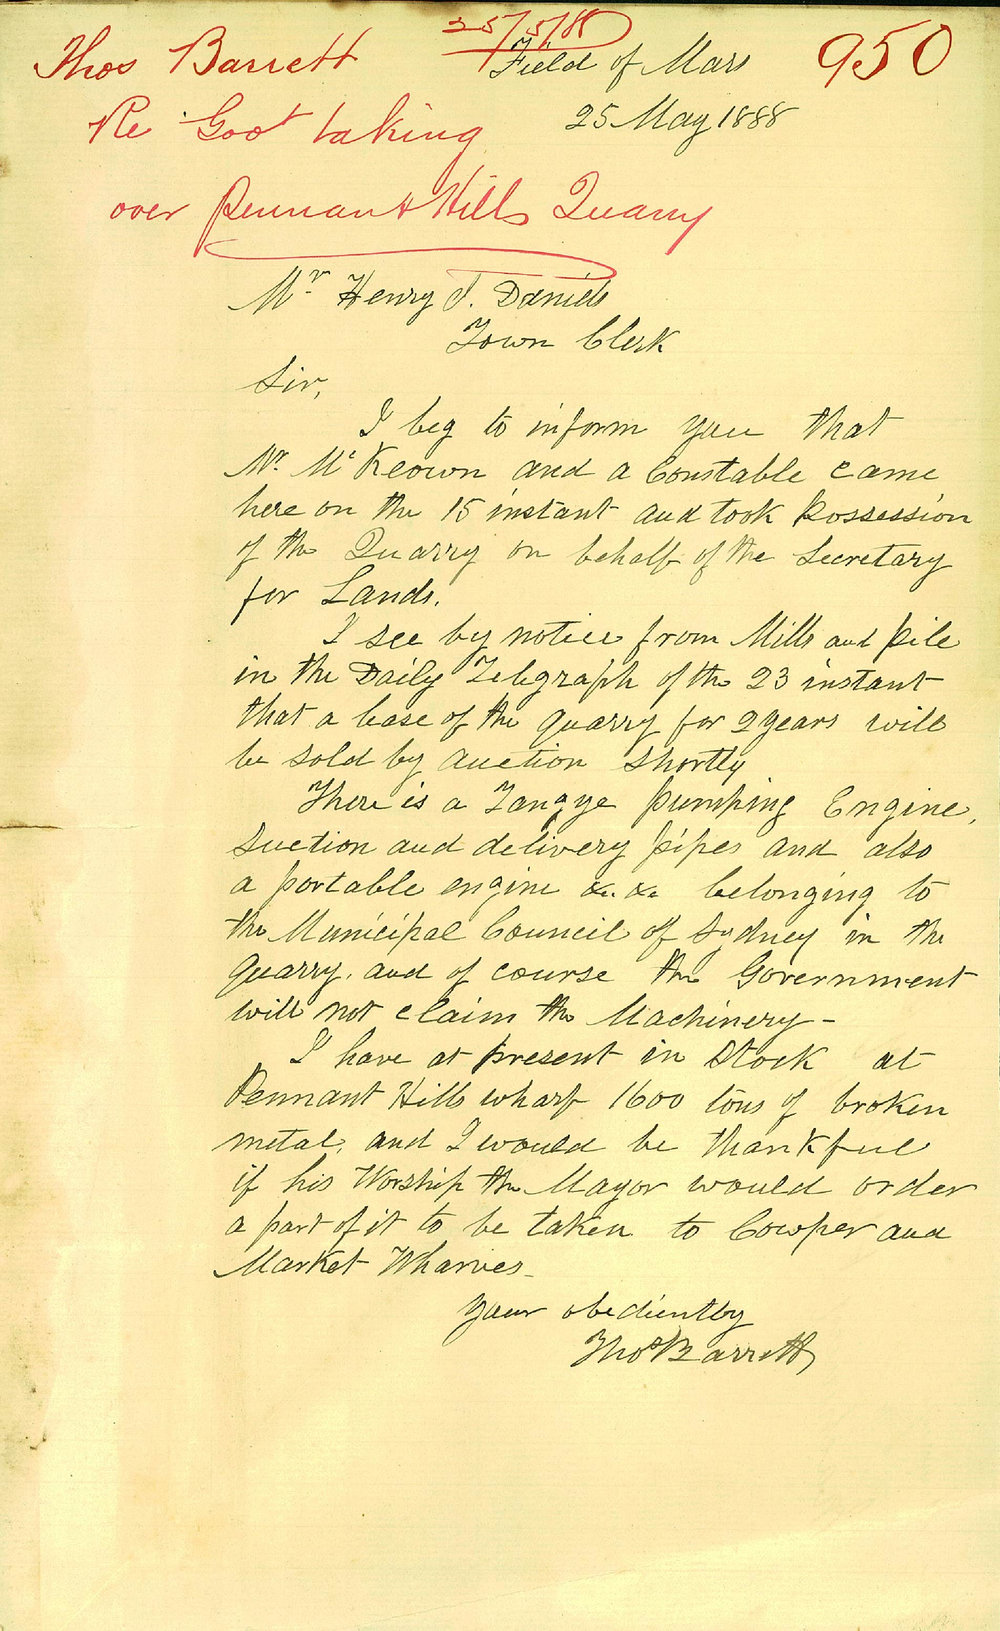 25/5/88
Thos Barrett
950
Re Govt taking
over Pennant Hills Quarry
Field of Mars
25 May 1888
Mr Henry J. Daniels
Town Clerk
Sir,
I beg to inform you that
Mr. McKeown and a Constable came
here on the 15 instant and took Possession
of the Quarry on behalf of the Secretary
for Lands.
I see by notice from Mills and Pile
in the Daily Telegraph of the 23 instant
that a lease of the quarry for 2 years will
be sold by auction shortly
There is a Tangye Pumping Engine,
Suction and delivery pipes and also
a portable engine &c. &c. belonging to
the Municipal Council of Sydney in the
quarry. and of course the Government
will not claim the Machinery -
I have at present in Stock at
Pennant Hills wharf 1600 tons of broken
metal, and I would be thankful
if his Worship the Mayor would order
a part of it to be taken to Cowper and
Market Wharves.
Your obediently
Thos Barrett